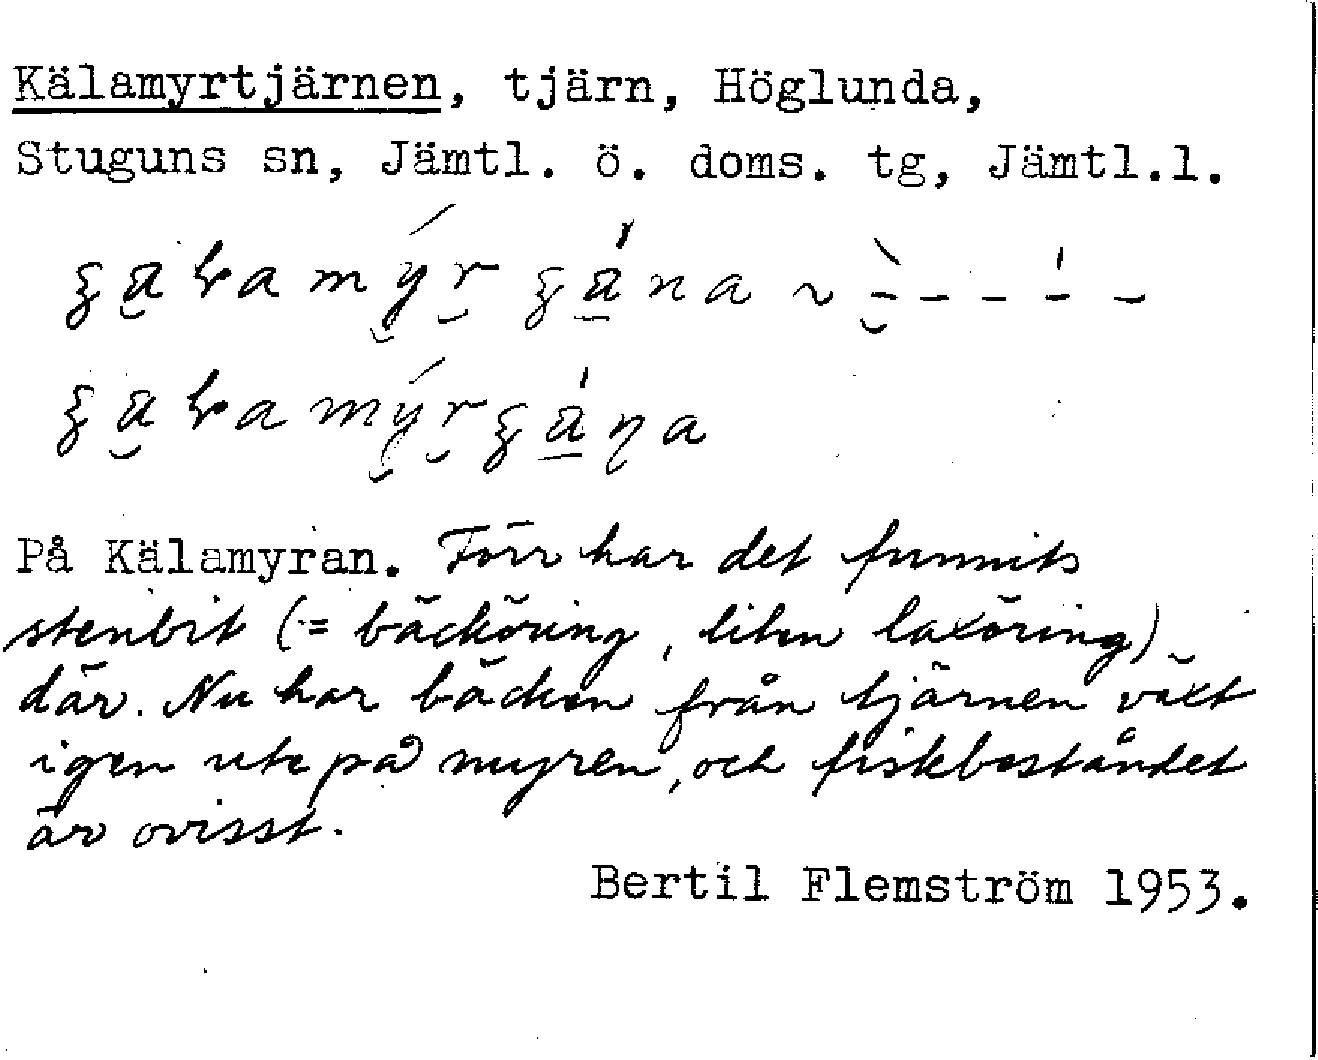 Kälamyrtjärnen, tjärn, Höglunda,
Stuguns sn, Jämtl. ö. doms. tg, Jämtl.l.
På Kälamyran. Förr har det funnits
stenbit (= bäcköring, liten laxöring)
där. Nu har bäcken från tjärnen växt
igen ute på myren, och fiskbeståndet
är ovisst.
Bertil Flemström 1953.